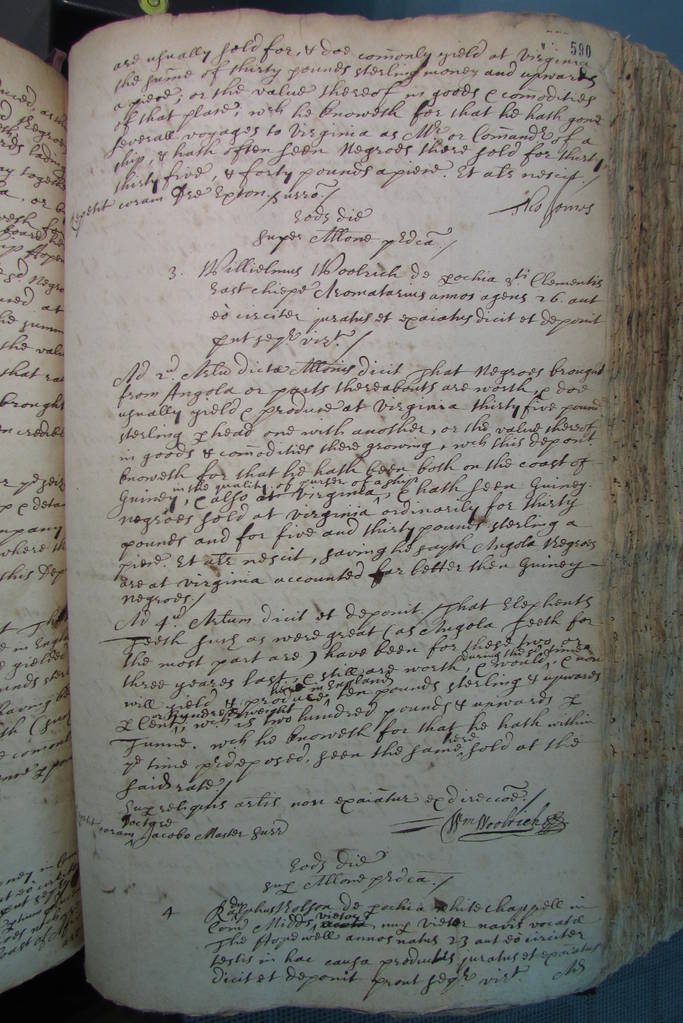 590
are usually sold for, & doe comonly yield at Virginia
the sume of thirty pounds sterling money and upwards
a piece, or the value thereof in goods & comodities
of that place, wch he knoweth for that he hath gone
severall voyages to Virginia as Mr or Comandr of a
ship, & hath often seen Negroes there sold for thirty,
thirty five, & forty pounds a piece. Et alr nescit /
repetit coram Dre Exton surrō
Eodē die
Super Allōne prdca /
3. Willielmus Woolrich de pochia Sti Clementis
East cheape Aromatarius annos agens 26 aut
eo circiter juratus et exaiatus dicit et deponit
put seqr virt /
Ad 2um Artum dicta Allōnis dicit That Negroes brought
from Angola or parts thereabouts are worth, & doe
usually yield & produce at Virginia thirty five pounds
sterling p head one with another, or the value thereof
in goods & comodities there growing, wch this deponent
knoweth for that he hath been both on the coast of
in the quality of purser of a ship
Guiney, & also at Virginia, & hath seen Guiney
negroes sold at Virginia ordinarily for thirty
pounds and for five and thirty pounds sterling a
piece. Et alr nescit, saving he sayth Angola Negroes
are at Virginia accounted far better then Guiney
Negroes /
Ad 4um Artum dicit et deponit That Elephants
Teeth such as were great (as Angola Teeth for
the most part are) have been for these two or
during the sd time
three yeares last, & still are worth, & would, & now
here in England
will yield & produce, ten pounds sterling & upwards
or hundred weight
p Cent, wch is two hundred pounds & upwards p
Tunne. wch he knoweth for that he hath within
here
ye time prdeposed, seen the same sold at the
said rate /
Sup reliquis artis non exaiatur ex direccōe /
coram Doctore Jacobo Master surr
Wm Woolrich
Eodē die
sup Allōne prdca /
4 Rādulphus Rolson de pochia White chappell in
Com Midds victor
The Hopewell annos natus 23 aut eo circiter
testis in hac causa productus juratus et exaiatus
dicit et deponit prout seqr virt. Ad